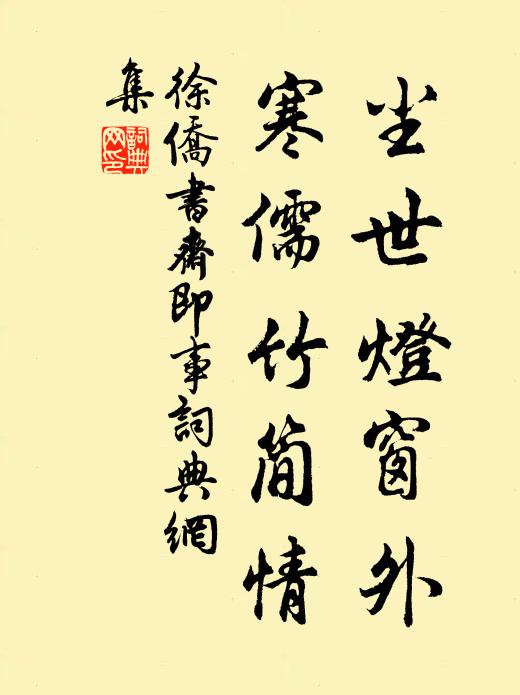 尘世燈窗外
寒儒竹简情
徐僑書齋即事詞典網
集
詞典
网印